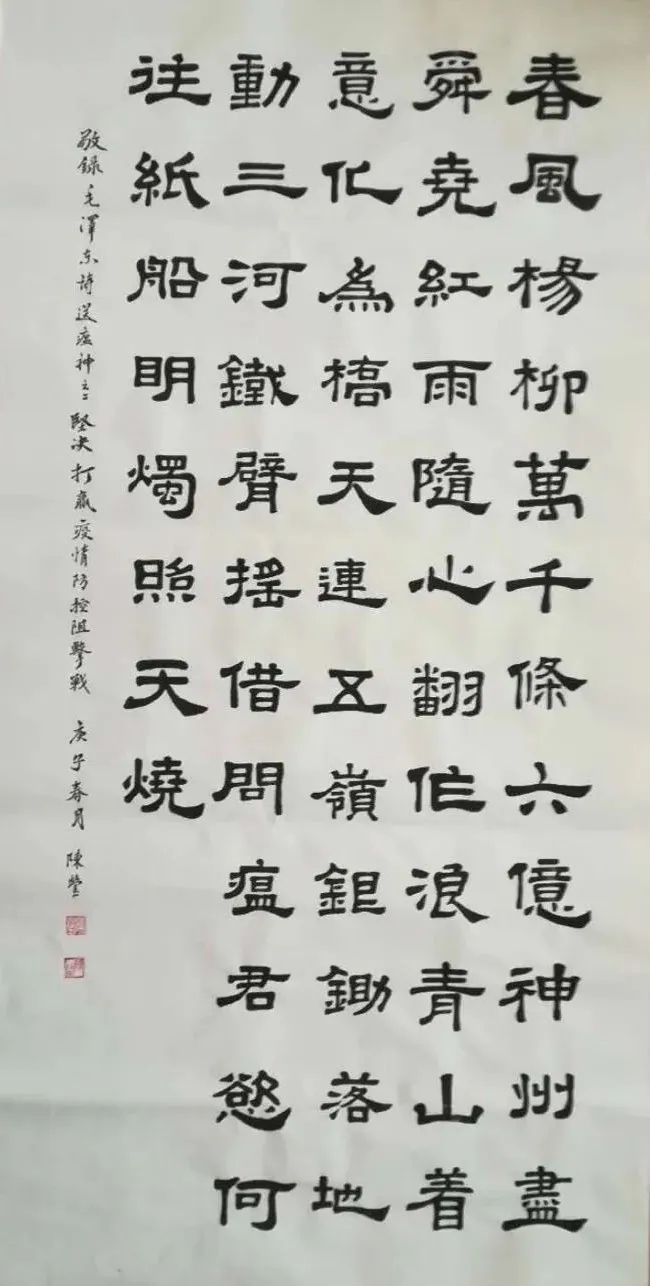 春風楊柳萬千條六億神州盡
舜堯紅雨隨心翻作浪青山着
意化為橋天連五嶺鉏鋤落地
動三河鐵臂摇借問瘟君慾何
往紙船明燭照天燒
敬録毛澤东詩送瘟神之二堅决打贏疫情防控阻擊戰 庚子春月 陳瑩